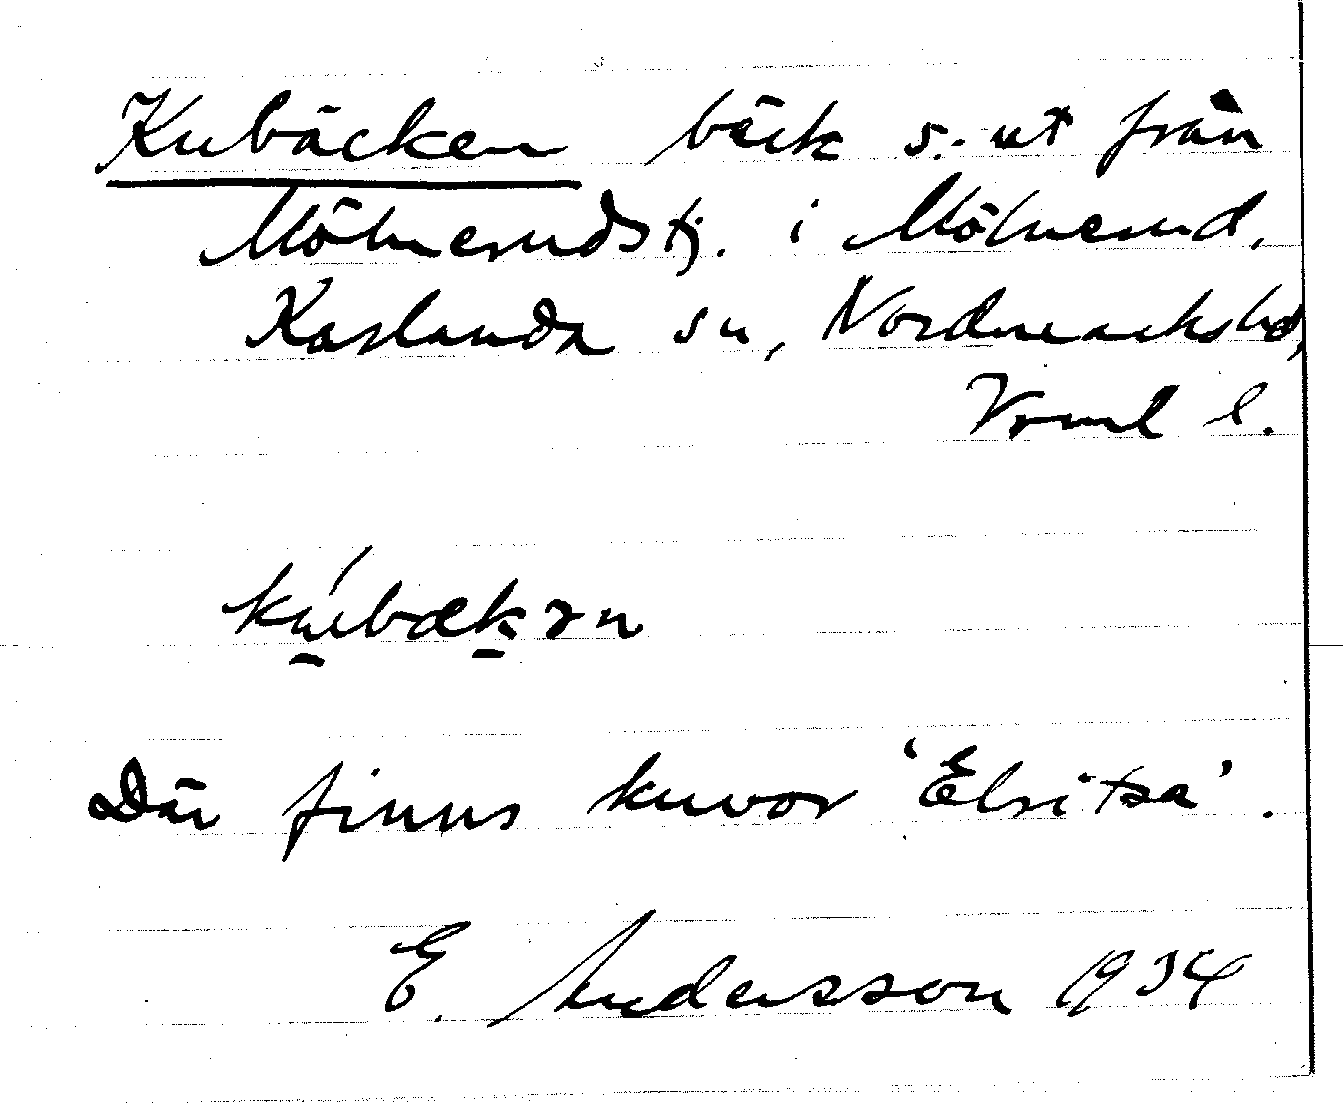 Kubäcken bäck s. ut från
Mölnerudstj. i Mölnerud,
Karlanda sn, Nordmarkshd,
Vrml l.
kúbækən
Där finns kuvor 'Elritsa'.
E. Andersson 1934